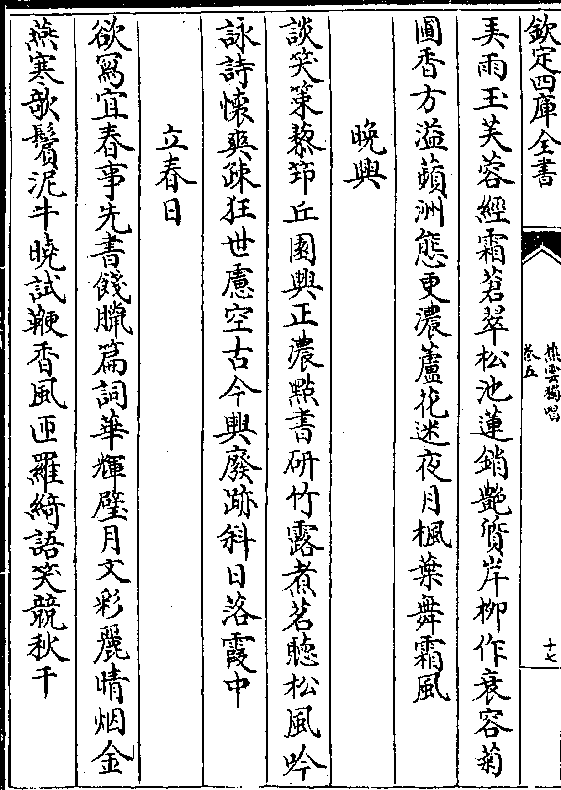 欽定四庫全書
樵雲獨唱
卷五
十七
美雨玉芙蓉經霜蒼翠松池蓮銷艷質岸柳作衰容菊
圃香方溢蘋洲態更濃蘆花迷夜月楓葉舞霜風
晚興
談笑策藜筇丘園興正濃點書研竹露煮茗聴松風吟
詠詩懐爽踈狂世慮空古今興廢跡斜日落霞中
立春日
欲冩宜春事先書餞臘篇詞華輝璧月文彩麗晴烟金
燕寒欹鬢泥牛曉試鞭香風匝羅綺語笑競秋千